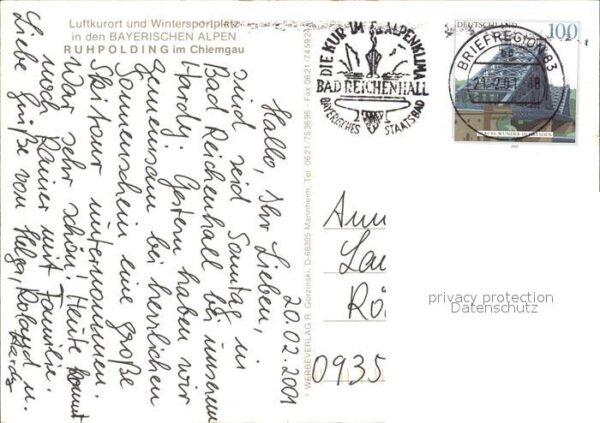 Luftkurort und Wintersportplatz
in den BAYERISCHEN ALPEN
RUHPOLDING im Chiemgau
20.02.2001
Hallo, Ihr Lieben,
sind seit Samstag in
Bad Reichenhall bei unserem
Hardy. Gestern haben wir
gemeinsam bei herrlichem
Sonnenschein eine große
Skitour unternommen.
War sehr schön! Heute kommt
noch Rainer mit Familie.
Liebe Grüße von Helga, Roland u.
Hardy
* WERBEVERLAG R. Gorzinski, D-68305 Mannheim, Tel. 0621/753695 - Fax 0621/745924
DIE KUR IM ALPENKLIMA
BAD REICHENHALL
BAYERISCHES STAATSBAD
BRIEFREGION 83
DEUTSCHLAND 100
BLAUES WUNDER IN DRESDEN
Ann
Lau
Rö
0935
privacy protection
Datenschutz